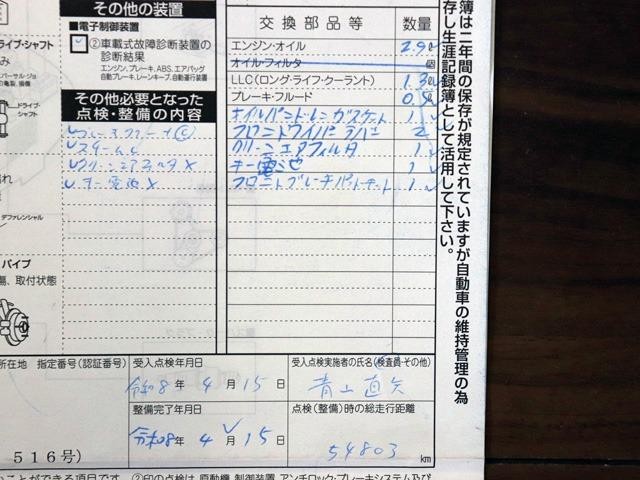 その他の装置
■電子制御装置
②車載式故障診断装置の
診断結果
エンジン、ブレーキ、ABS、エアバッグ
自動ブレーキ、レーンキープ、自動運行装置
その他必要となった
点検・整備の内容
スチーム
クリーンエアフィルタ ×
キー電池 ×
交換部品等 数量
エンジン・オイル 2.9ℓ
オイル・フィルタ 個
LLC(ロング・ライフ・クーラント) 1.3ℓ
ブレーキ・フルード 0.5ℓ
オイルパンドレンガスケット 1
フロントワイパーラバー 2
クリーンエアフィルタ 1
キー電池 1
フロントブレーキパットキット 1
簿は二年間の保存が規定されていますが自動車の維持管理の為
存し生涯記録簿として活用して下さい。
ライブ・シャフト
パイプ
傷、取付状態
所在地 指定番号(認証番号)
516号)
受入点検年月日
令和8年 4月 15日
整備完了年月日
令和8年 4月 15日
受入点検実施者の氏名(検査員・その他)
青山直矢
点検(整備)時の総走行距離
54803 km